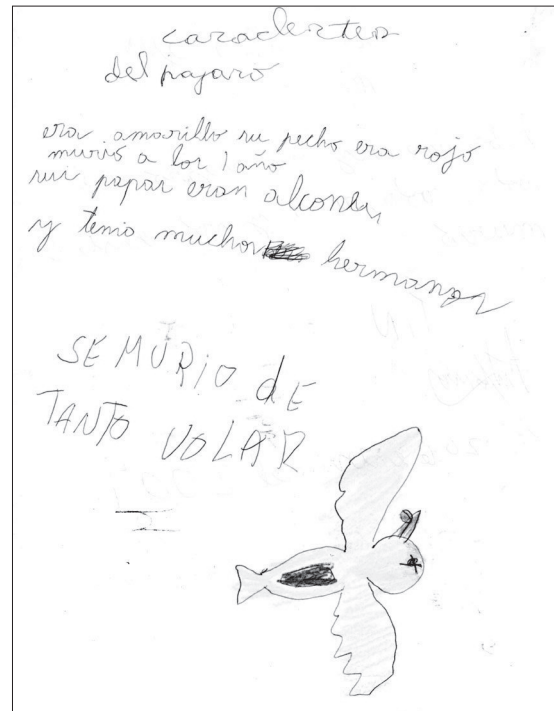 caracterter
del pajaro
era amarillo su pecho era rojo
murio a los 1 año
sus papas eran alcones
y tenia muchos hermanos
SE MURiO dE
TANTO VOLAR